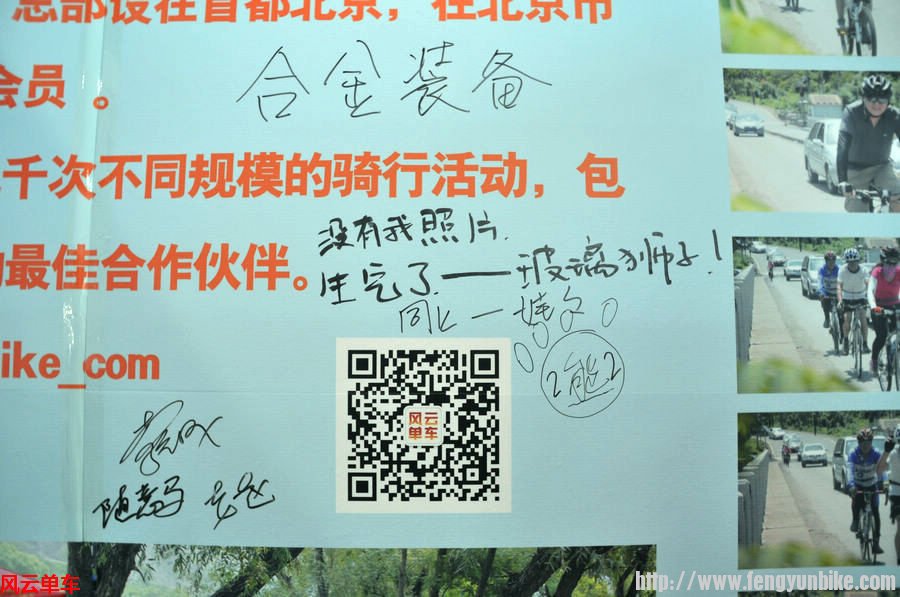 总部设在首都北京，在北京市
合金装备
会员。
千次不同规模的骑行活动，包
没有我照片.
生气了——玻璃狮子！
最佳合作伙伴。
同上—
ike_com
2熊2
风云
单车
随意马
风云单车
http://www.fengyunbike.com